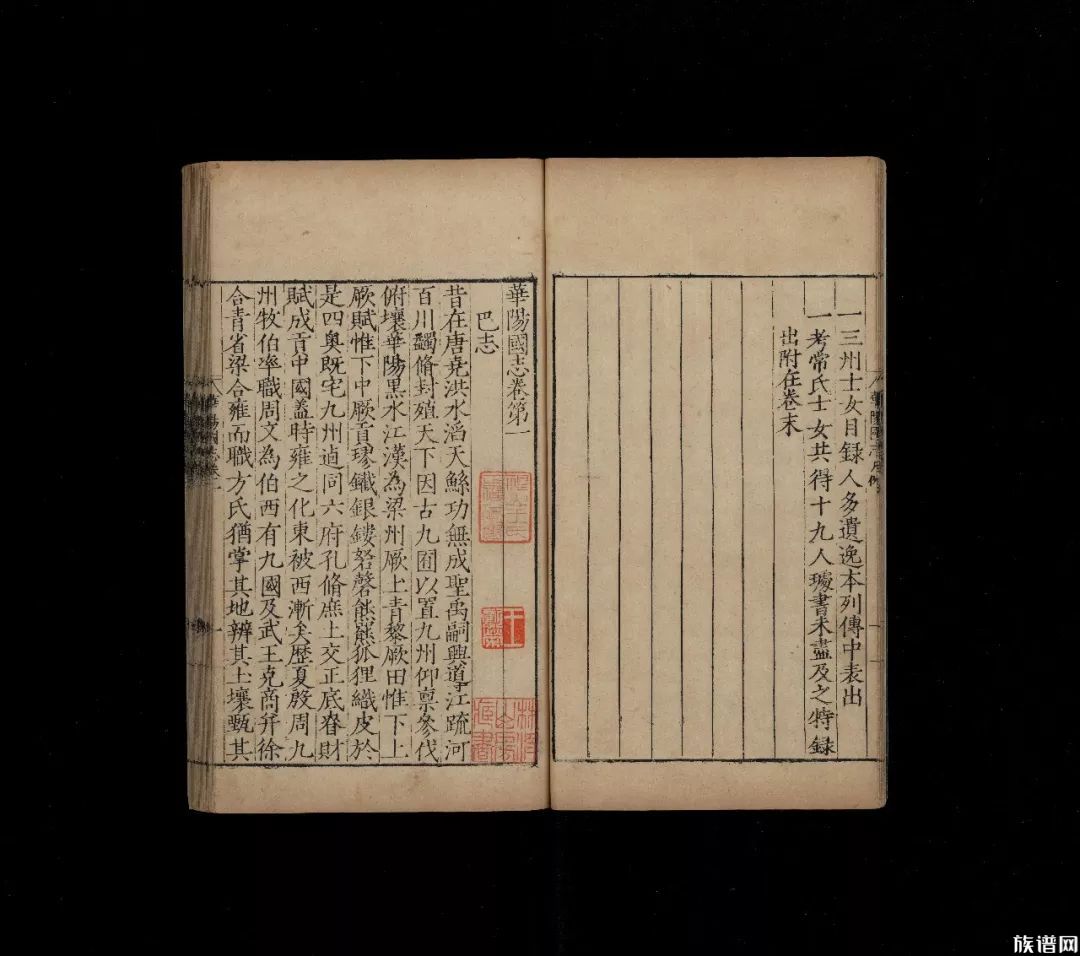 一三州士女目錄人多遺逸本列傳中表出
一考常氏士女共得十九人璩書未盡及之特録
出附在卷末
華陽國志卷第一
巴志
昔在唐堯洪水滔天鯀功無成聖禹嗣興導江疏河
百川蠲脩封殖天下因古九囿以置九州仰禀參伐
俯壤華陽黒水江漢為梁州厥土青黎厥田惟下上
厥賦惟下中厥貢璆鐵銀鏤砮磬熊羆狐狸織皮於
是四奥既宅九州逌同六府孔脩庶土交正底眘財
賦成貢中國盖時雍之化東被西漸矣歷夏殷周九
州牧伯率職周文為伯西有九國及武王克商并徐
合青省梁合雍而職方氏猶掌其地辨其土壤甄其
族谱网